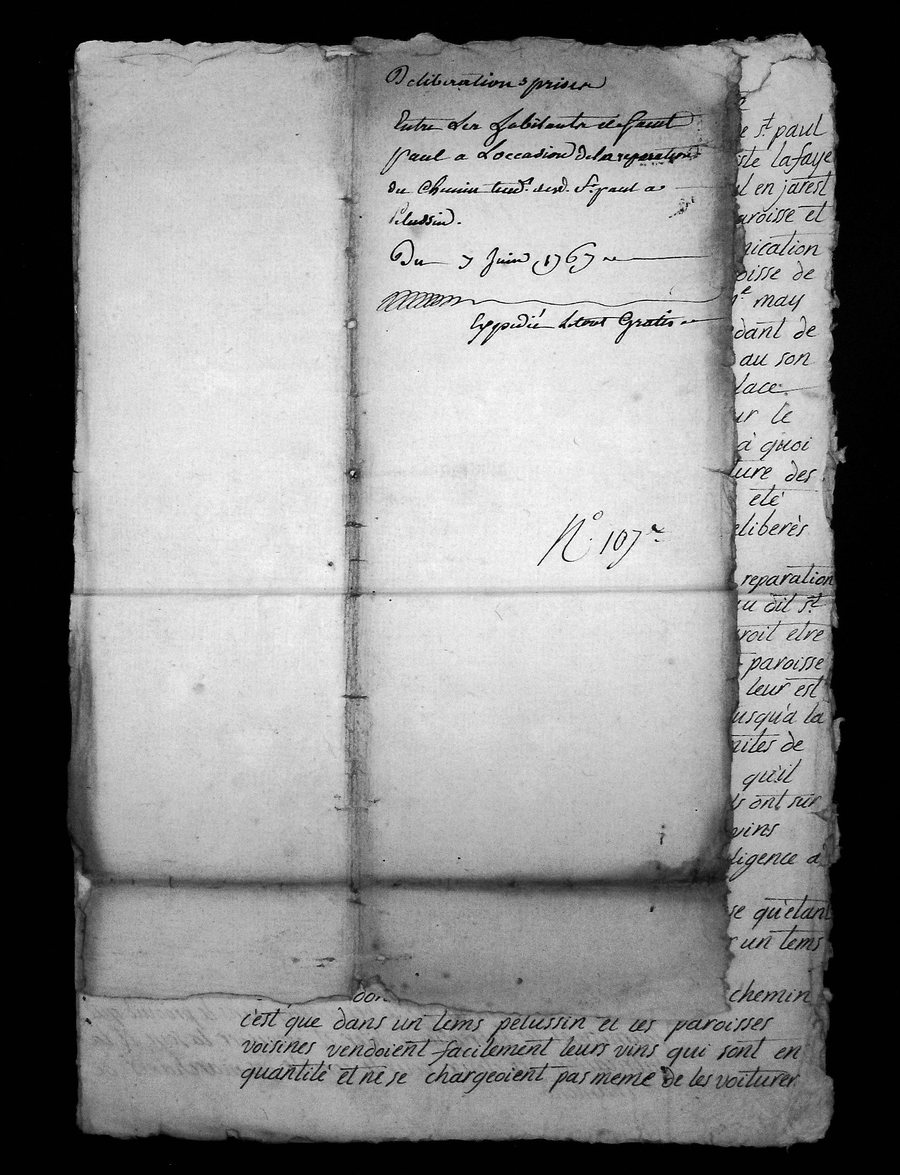 Deliberations prises
Entre Les habitants de Saint
paul a Loccasion de la reparation
du Chemin tend. dud. St. paul a
Pelussin.
Du 7 Juin 1767
Expedié Gratis
No. 107
e st. paul
ste lafaye
l en jarest
aroisse et
nication
oisse de
me may
dant de
au son
lace
ur le
à quoi
ture des
eté
eliberés
reparation
au dit st.
roit etre
paroisse
leur est
usqu'a la
mites de
qu'il
ls ont sur
vins
ligence a
se qu'etant
r un tems
don chemin
c'est que dans un tems pelussin et les paroisses
voisines vendoient facilement leurs vins qui sont en
quantité et ne se chargeoient pas meme de les voiturer